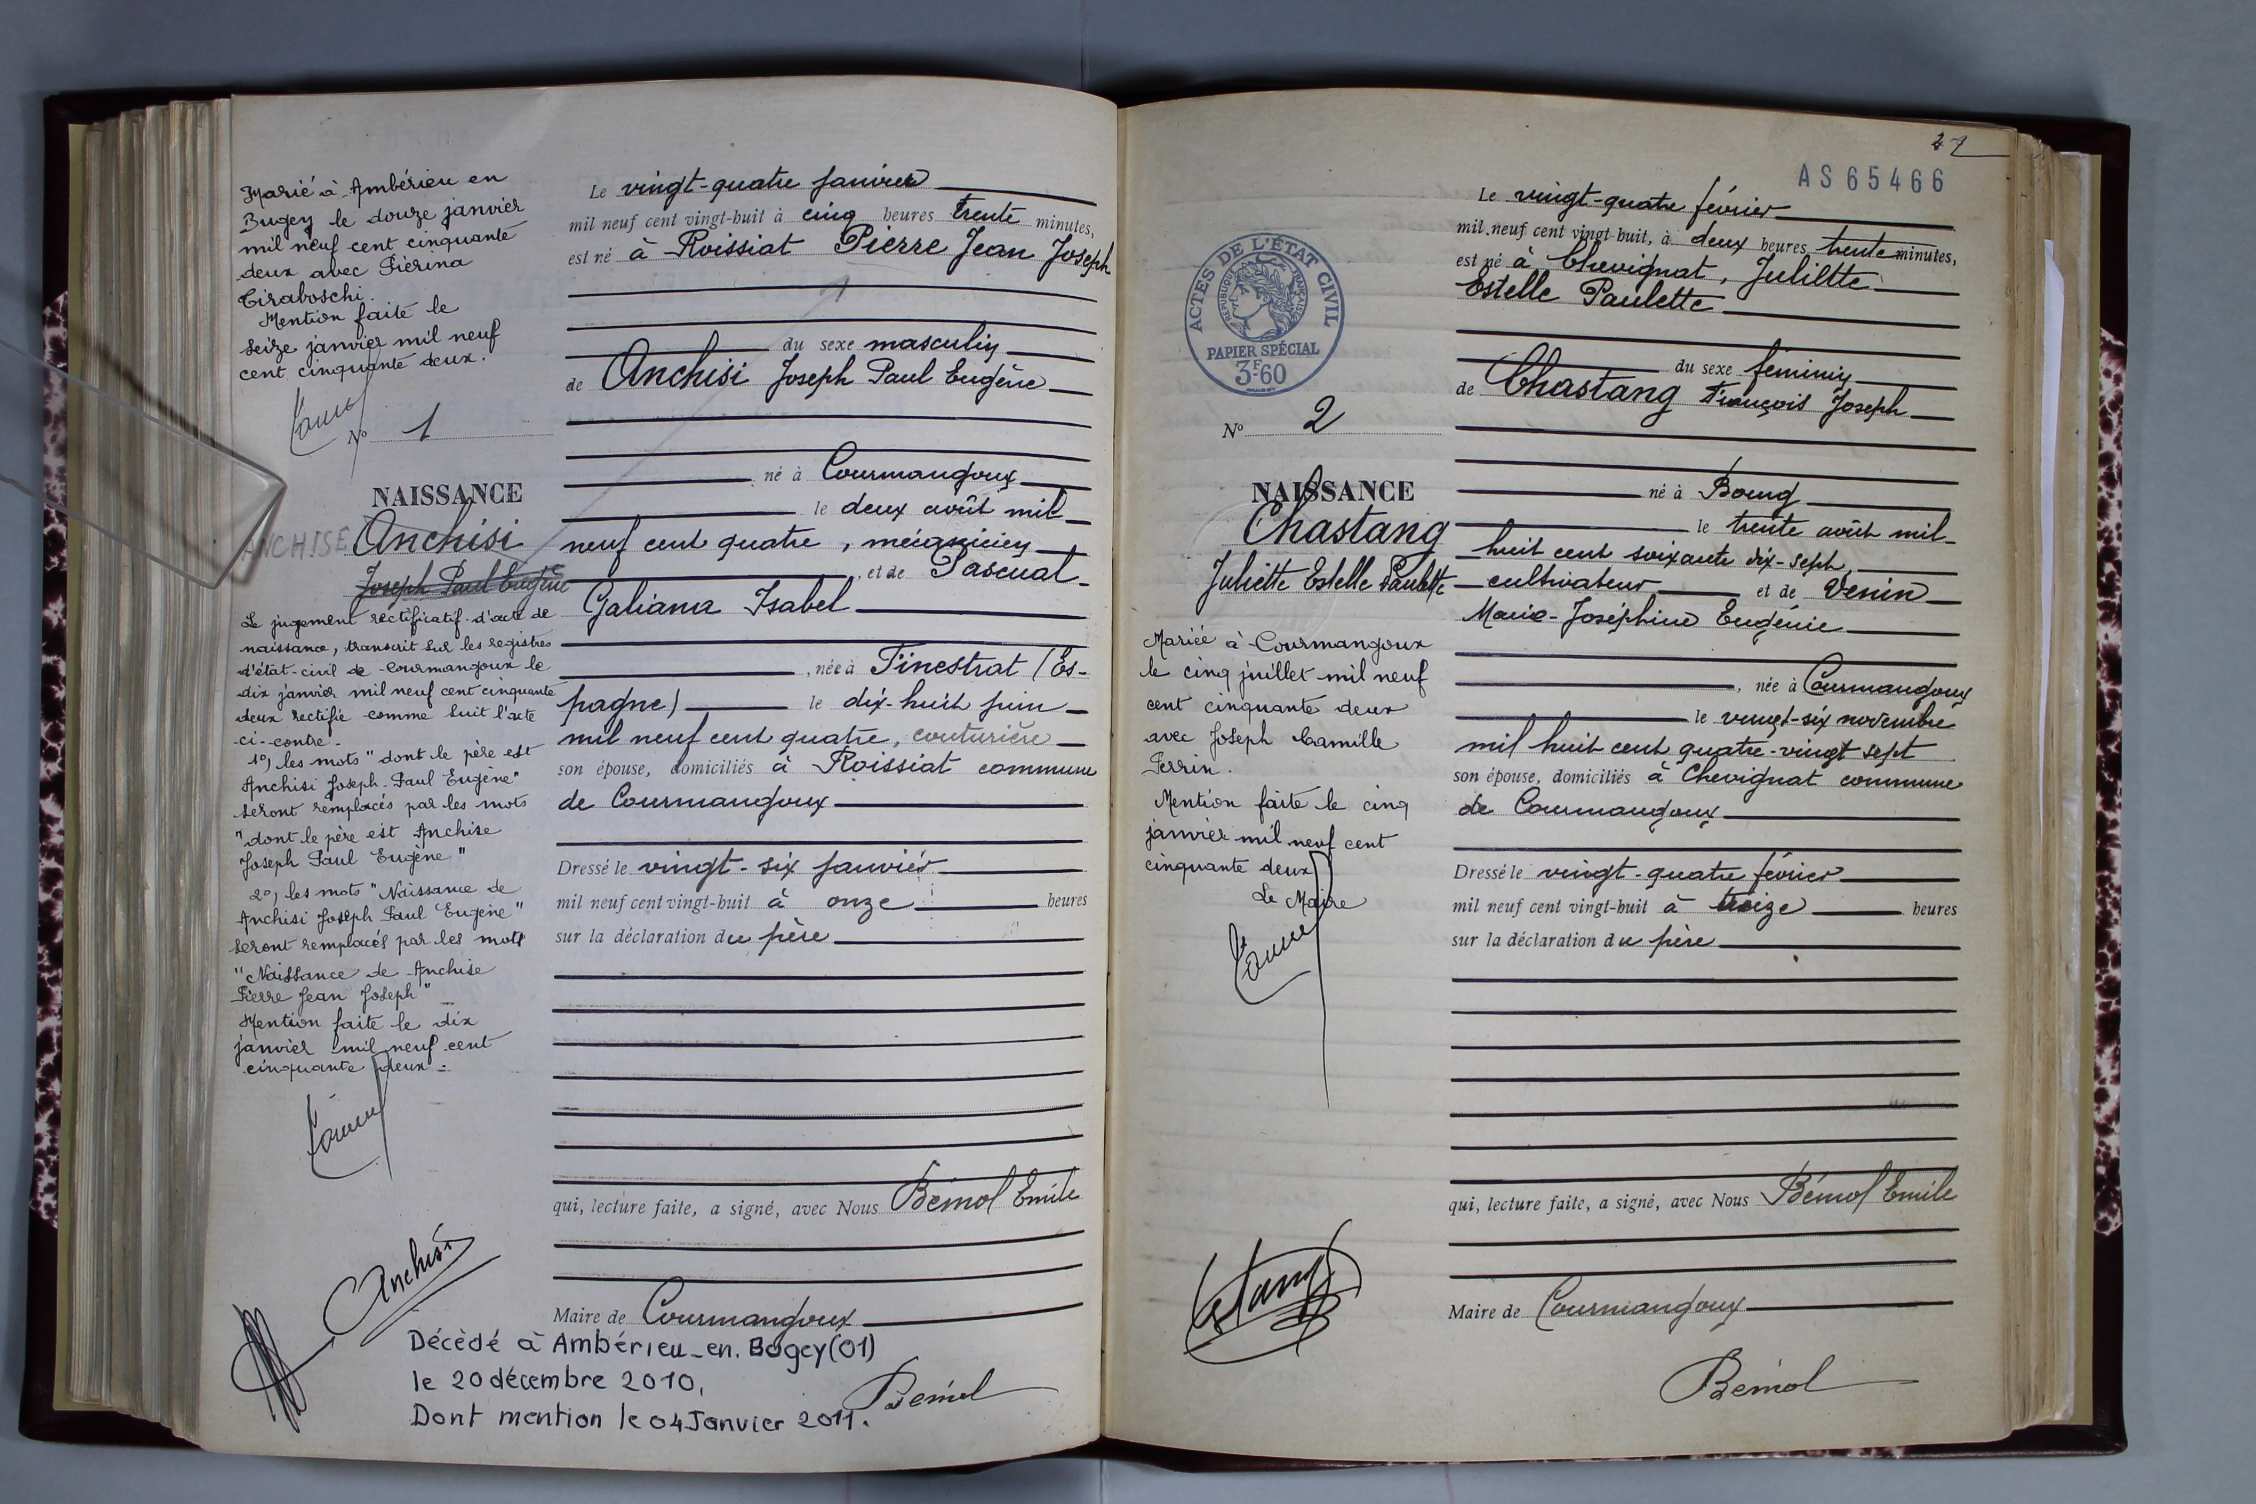 Marié à Ambérieu en
Bugey le douze janvier
mil neuf cent cinquante
deux avec Pierina
Ciraboschi.
Mention faite le
seize janvier mil neuf
cent cinquante deux.
N° 1
NAISSANCE
ANCHISE Anchisi
Joseph Paul Eugène
Le jugement rectificatif d'acte de
naissance, transcrit sur les registres
d'état-civil de Courmangoux le
dix janvier mil neuf cent cinquante
deux rectifie comme suit l'acte
ci-contre.
1°) les mots "dont le père est
Anchisi Joseph Paul Eugène"
seront remplacés par les mots
"dont le père est Anchise
Joseph Paul Eugène"
2°) les mots "Naissance de
Anchisi Joseph Paul Eugène"
seront remplacés par les mots
"Naissance de Anchise
Pierre Jean Joseph"
Mention faite le dix
janvier mil neuf cent
cinquante deux.
Anchisi
Le vingt-quatre janvier
mil neuf cent vingt-huit à cinq heures trente minutes,
est né à Roissiat Pierre Jean Joseph
du sexe masculin
de Anchisi Joseph Paul Eugène
né à Courmangoux
le deux août mil
neuf cent quatre, mécanicien
, et de Pascual
Galiana Isabel
, née à Finestrat (Es-
pagne) le dix-huit juin
mil neuf cent quatre, couturière
son épouse, domiciliés à Roissiat commune
de Courmangoux
Dressé le vingt-six janvier
mil neuf cent vingt-huit à onze heures
sur la déclaration du père
qui, lecture faite, a signé, avec Nous Bémol Emile
Maire de Courmangoux
Décèdé à Ambérieu-en-Bugey (01)
le 20 décembre 2010,
Dont mention le 04 Janvier 2011.
Bémol
27
AS 65466
ACTES DE L'ÉTAT CIVIL
RÉPUBLIQUE FRANÇAISE
PAPIER SPÉCIAL
3F60
N° 2
NAISSANCE
Chastang
Juliette Estelle Paulette
Mariée à Courmangoux
le cinq juillet mil neuf
cent cinquante deux
avec Joseph Camille
Perrin.
Mention faite le cinq
janvier mil neuf cent
cinquante deux
Le Maire
Le vingt-quatre février
mil neuf cent vingt-huit, à deux heures trente minutes,
est né à Chevignat, Juliette
Estelle Paulette
du sexe féminin
de Chastang François Joseph
né à Bourg
le trente août mil
huit cent soixante dix-sept,
cultivateur et de Venin
Marie-Joséphine Eugénie
, née à Courmangoux
le vingt-six novembre
mil huit cent quatre-vingt sept
son épouse, domiciliés à Chevignat commune
de Courmangoux
Dressé le vingt-quatre février
mil neuf cent vingt-huit à treize heures
sur la déclaration du père
qui, lecture faite, a signé, avec Nous Bémol Emile
Maire de Courmangoux
Bémol